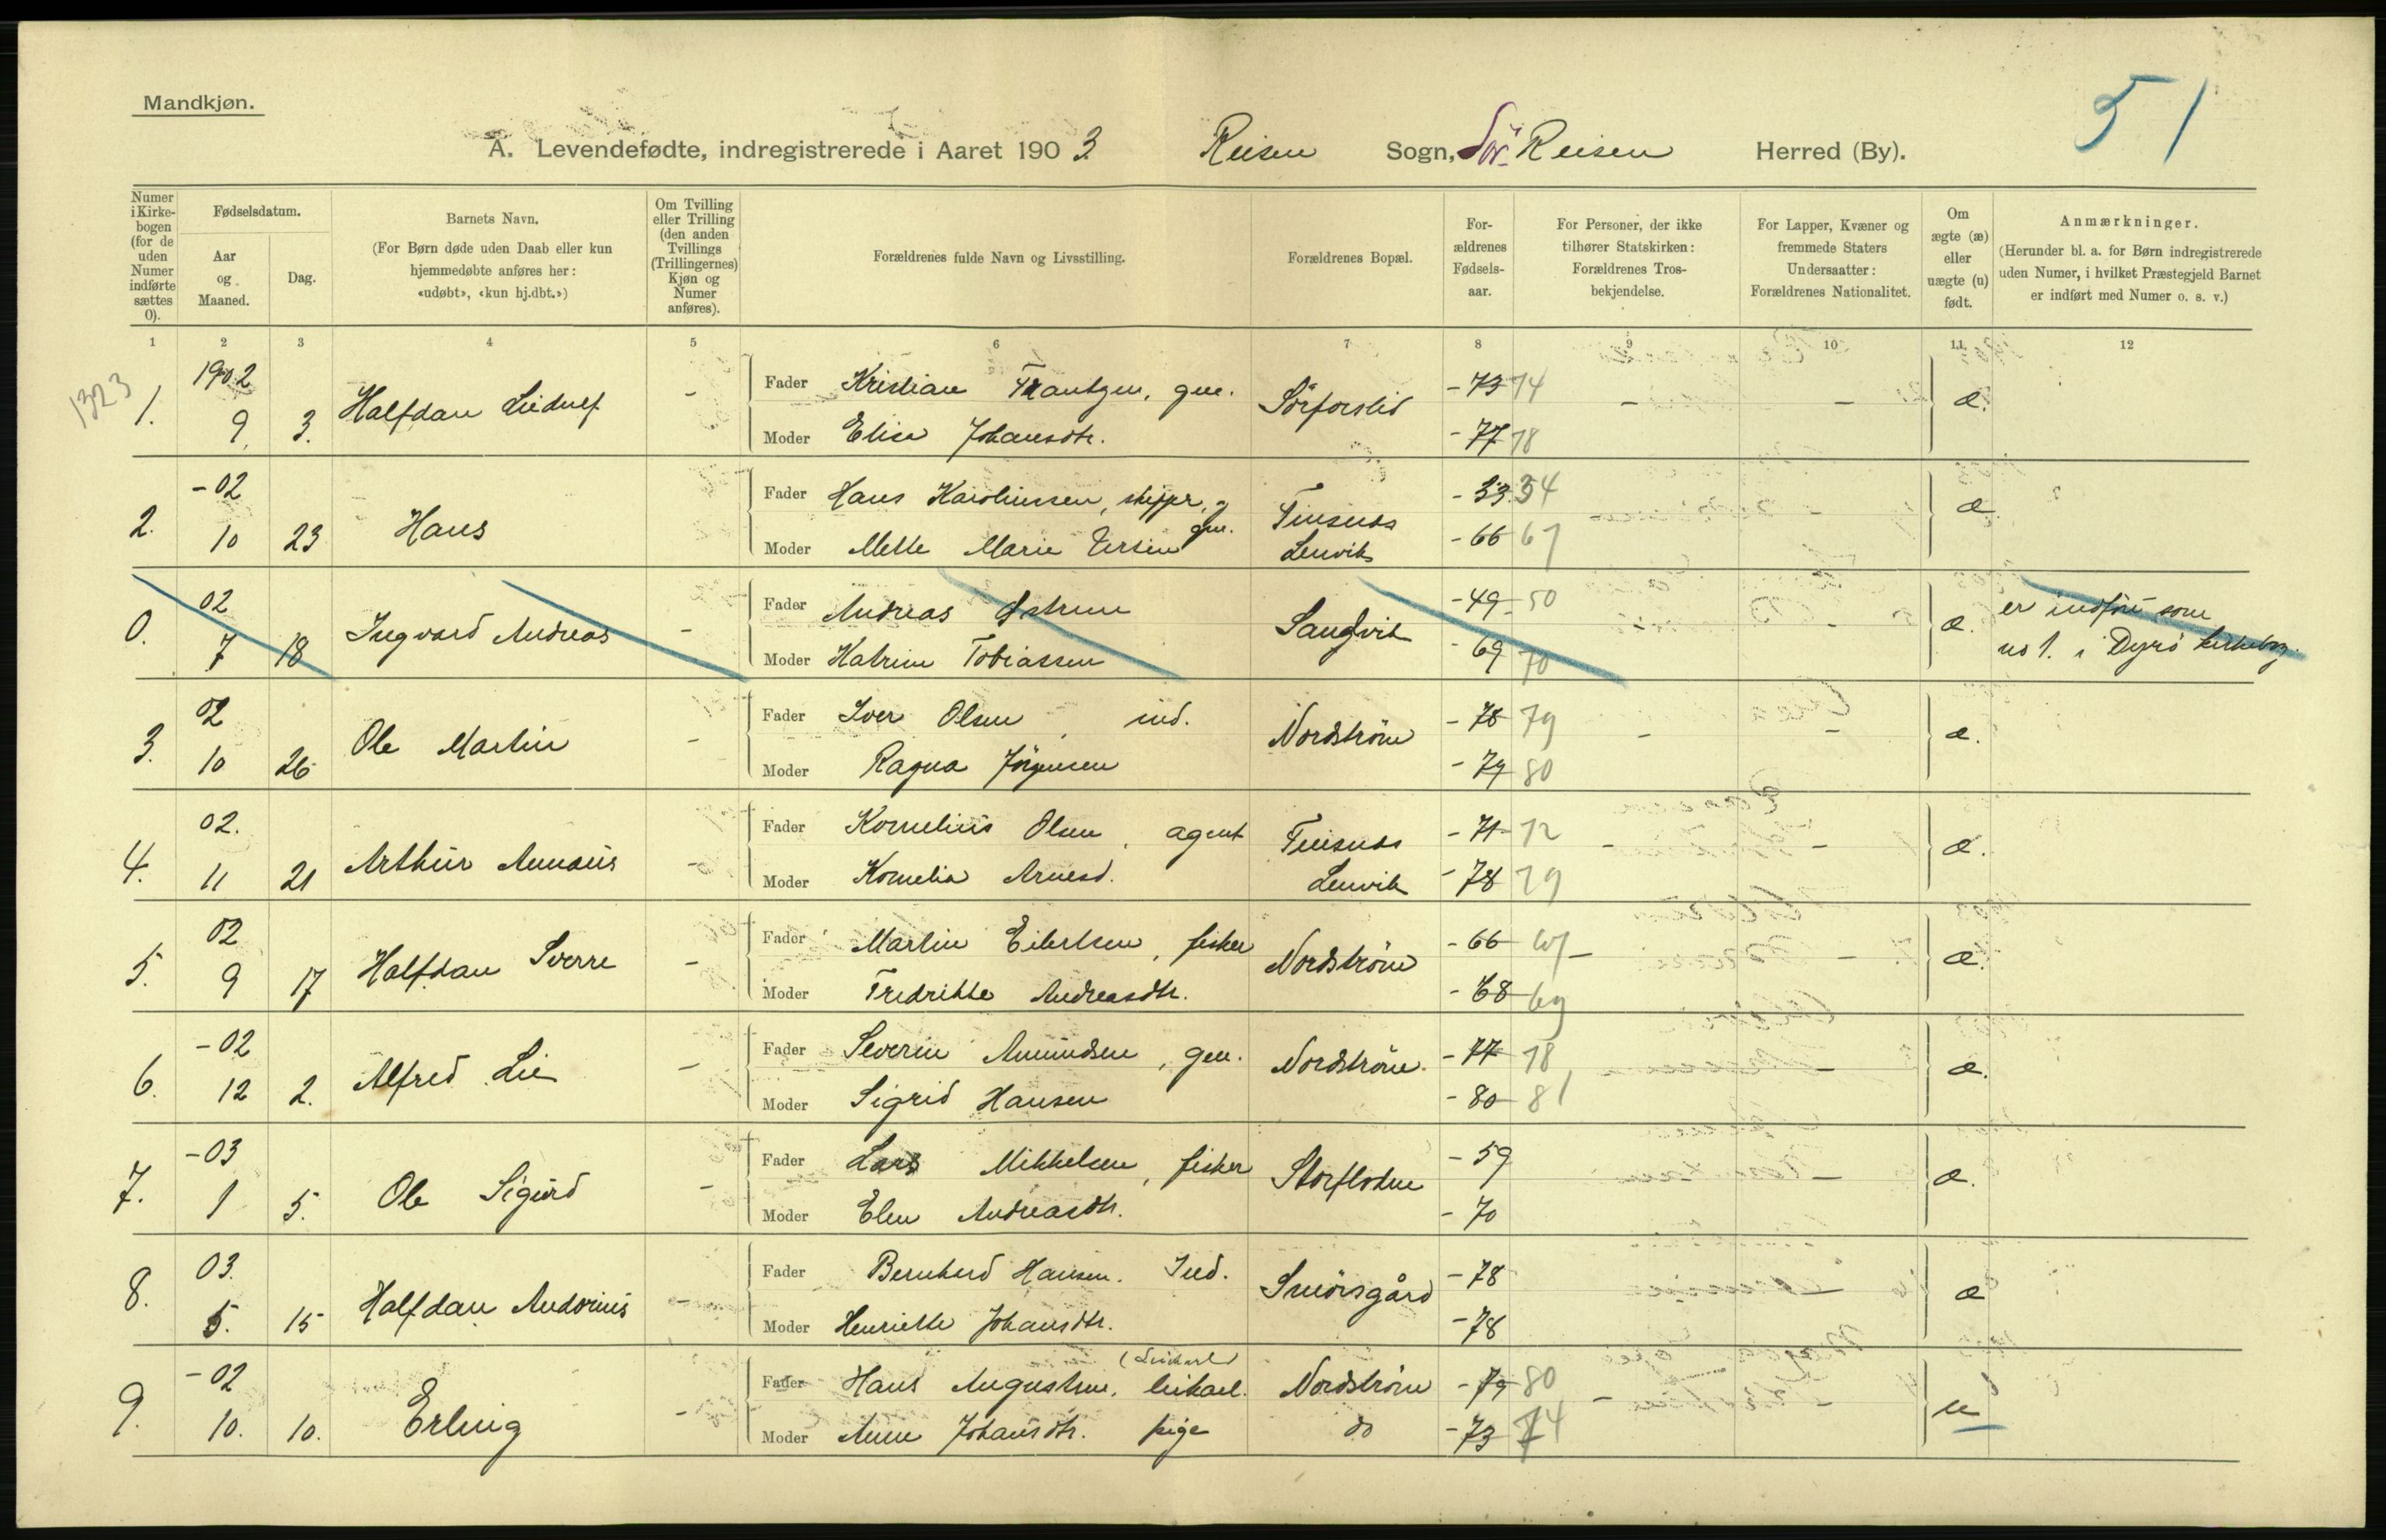 Mandkjøn.
51
A. Levendefødte, indregistrerede i Aaret 1903. Reisen Sogn, Sör-Reisen Herred (By).
Numer i Kirkebogen (for de uden Numer indførte sættes 0).
Fødselsdatum.
Aar og Maaned.
Dag.
Barnets Navn.
(For Børn døde uden Daab eller kun hjemmedøbte anføres her: «udøbt», «kun hj.dbt.»)
Om Tvilling eller Trilling (den anden Tvillings (Trillingernes) Kjøn og Numer anføres).
Forældrenes fulde Navn og Livsstilling.
Forældrenes Bopæl.
Forældrenes Fødselsaar.
For Personer, der ikke tilhører Statskirken: Forældrenes Trosbekjendelse.
For Lapper, Kvæner og fremmede Staters Undersaatter: Forældrenes Nationalitet.
Om ægte (æ) eller uægte (u) født.
Anmærkninger.
(Herunder bl. a. for Børn indregistrerede uden Numer, i hvilket Præstegjeld Barnet er indført med Numer o. s. v.)
1 2 3 4 5 6 7 8 9 10 11 12
1323
1. 1902 9. 3. Halfdan Lidulf - Fader Kristian Frantzen, gm. Sörforslid - 73 74 - - æ.
Moder Elise Johansdtr. - 77 78
2. - 02 10 23 Hans Fader Hans Karolinssen, skipper, g gm. Finsnes - 33 34 æ
Moder Mette Marie Lenvik - 66 67
0. 02 7 18 Ingvard Andreas - Fader Andreas Sandvik - 49 50 æ. er indført som
Moder Katrine Tobiassen - 69 70 no 1. i Dyrö kirkebog.
3. 02 10 26 Ole Martin - Fader Iver Olsen, ind. Nordström - 78 79 - - æ.
Moder Ragna Jörgensen - 79 80
4. 02. 11 21 Arthur Annæus - Fader Kornelius Olsen, agent Finsnes - 71 72 - - æ.
Moder Kornelia Arnesd. Lenvik - 78 79
5. 02 9 17 Halfdan Sverre - Fader Martin Eilertsen, fisker Nordström - 66 67 - - æ.
Moder Fredrikke Andreasdtr. - 68 69
6. - 02 12 2. Alfred Lie - Fader Severin Amundsen, gm. Nordström. - 77 78 - æ.
Moder Sigrid Hansen - 80 81
7. - 03 1 5. Ole Sigurd - Fader Lars Mikkelsen, fisker Storflodn - 59 - æ.
Moder Elen Andreasdtr. - 70
8. 03. 5. 15 Halfdan Andorius - Fader Bernhard Hansen. Ind. Smörsgård - 78 - æ
Moder Henriette Johansdtr. - 78
9. - 02 10. 10. Erling - Fader Hans Augustsen, Nordström - 79 80 - - u
Moder Anna Johansdtr. pige do - 73 74